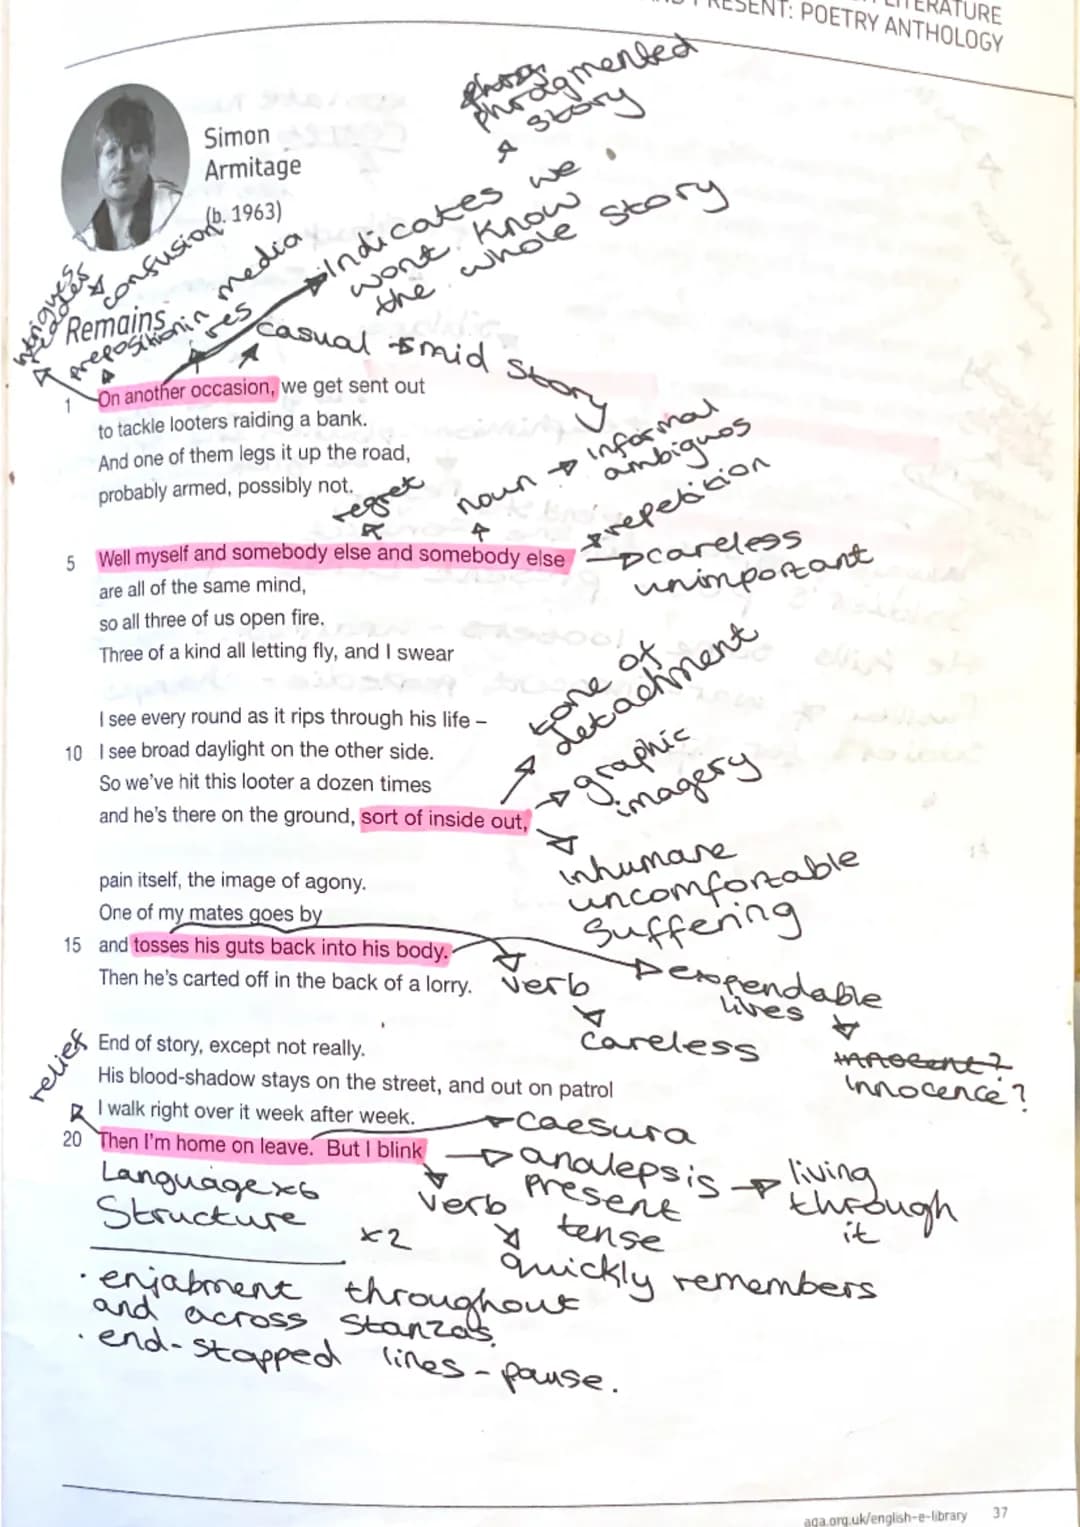 LITERATURE
PRESENT: POETRY ANTHOLOGY
phragmented
story
Simon
Armitage
(b. 1963)
indicates we
wont know
the whole story
intrigues
readers
confusion
in media
res
preposition
Remains
casual → mid story
1 On another occasion, we get sent out
to tackle looters raiding a bank.
And one of them legs it up the road,
probably armed, possibly not.
regret
noun → informal
ambiguos
repetition
5 Well myself and somebody else and somebody else
careless
unimportant
are all of the same mind,
so all three of us open fire.
Three of a kind all letting fly, and I swear
tone of
detachment
I see every round as it rips through his life –
10 I see broad daylight on the other side.
So we've hit this looter a dozen times
and he's there on the ground, sort of inside out,
graphic
imagery
inhumane
uncomfortable
suffering
pain itself, the image of agony.
One of my mates goes by
15 and tosses his guts back into his body.
Then he's carted off in the back of a lorry.
verb
careless
expendable
lives
innocent?
innocence?
relief
End of story, except not really.
His blood-shadow stays on the street, and out on patrol
I walk right over it week after week.
20 Then I'm home on leave. But I blink
caesura
analepsis → living
through
it
present
tense
verb
quickly remembers
Language x6
Structure x2
• enjabment throughout
and across stanzas.
• end-stopped lines - pause.
aqa.org.uk/english-e-library 37